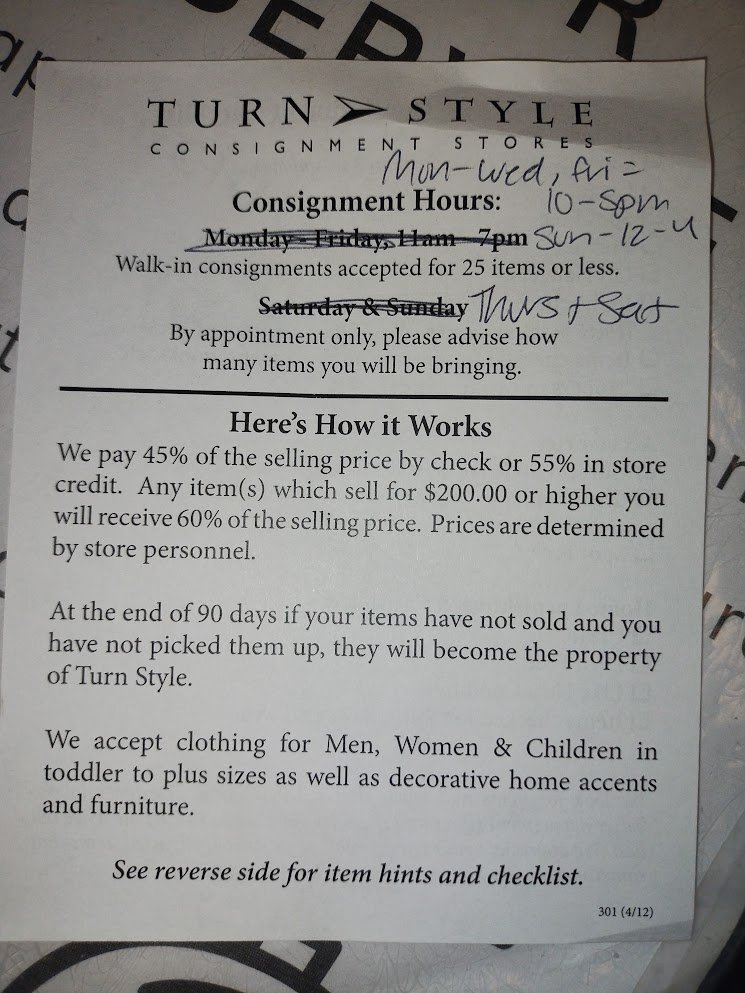 TURN STYLE
CONSIGNMENT STORES
Mon-Wed, Fri =
Consignment Hours: 10-5pm
Monday - Friday, 11am - 7pm Sun-12-4
Walk-in consignments accepted for 25 items or less.
Saturday & Sunday Thurs + Sat
By appointment only, please advise how
many items you will be bringing.
Here's How it Works
We pay 45% of the selling price by check or 55% in store
credit. Any item(s) which sell for $200.00 or higher you
will receive 60% of the selling price. Prices are determined
by store personnel.
At the end of 90 days if your items have not sold and you
have not picked them up, they will become the property
of Turn Style.
We accept clothing for Men, Women & Children in
toddler to plus sizes as well as decorative home accents
and furniture.
See reverse side for item hints and checklist.
301 (4/12)